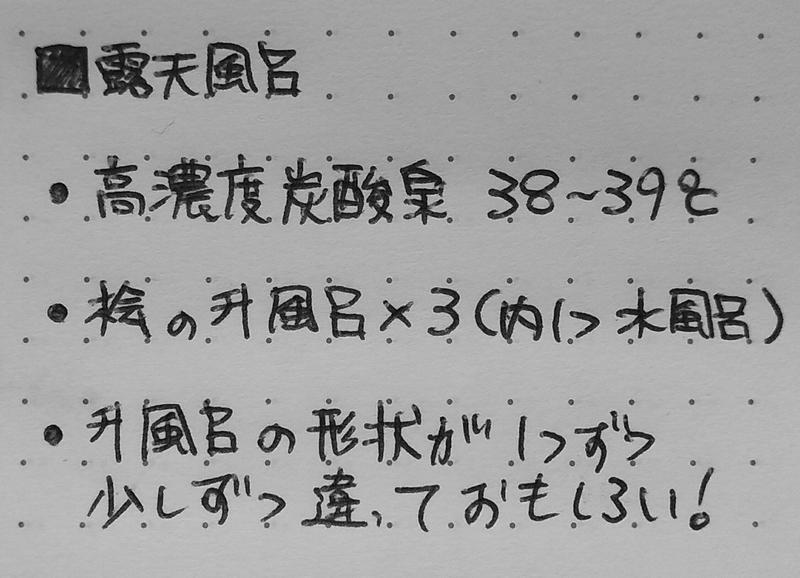 ■露天風呂
・高濃度炭酸泉 38~39℃
・桧の升風呂×3(内1つ水風呂)
・升風呂の形状が1つずつ
少しずつ違っておもしろい!